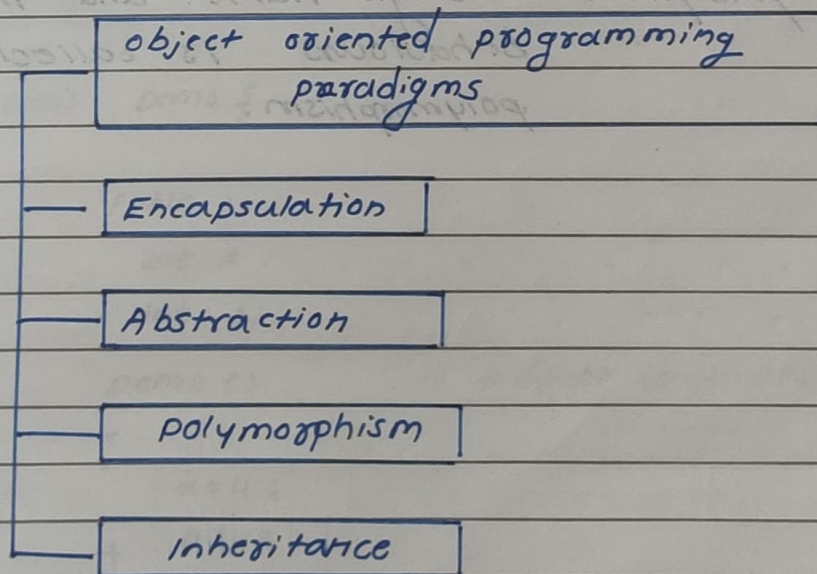 object oriented programming
paradigms
Encapsulation
Abstraction
polymorphism
Inheritance